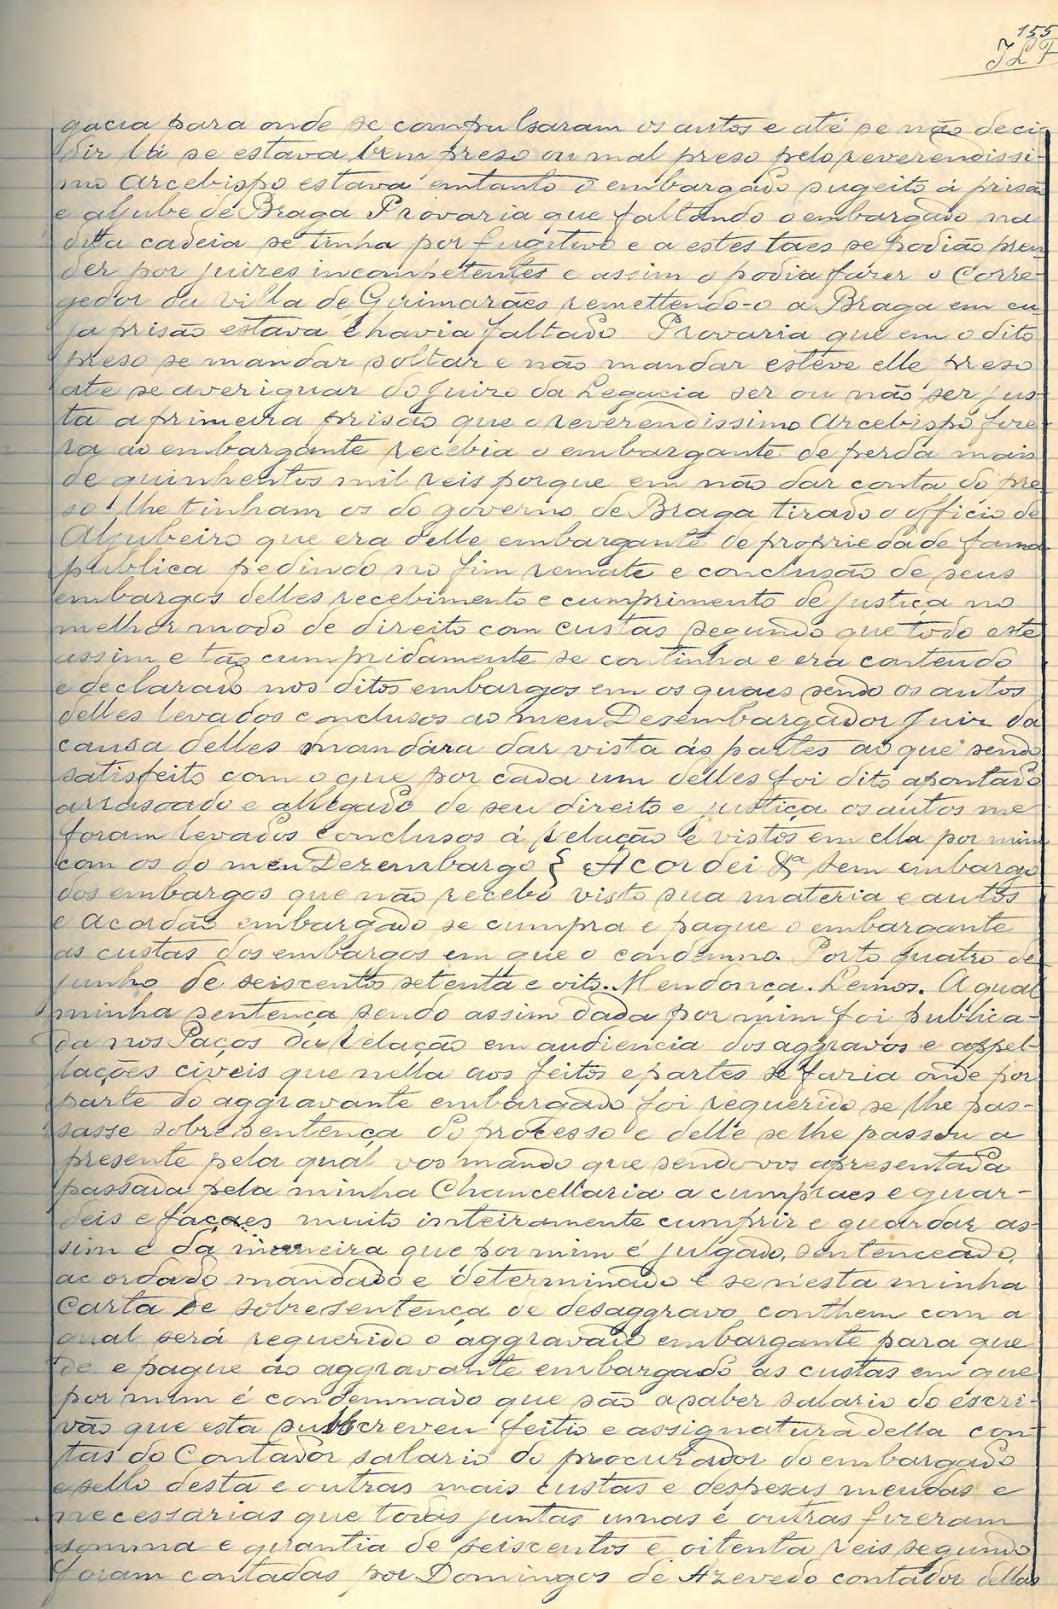 155
JLF
gacia para onde se compulsaram os autos e até se não deci-
dir lá se estava bem preso ou mal preso pelo reverendissi-
mo Arcebispo estava emtanto o embargado sugeito á prisão
e aljube de Braga Provaria que faltando o embargado na
dita cadeia se tinha por fugitivo e a estes taes se podião pren-
der por juizes incompetentes e assim o podia fazer o Corre-
gedor da villa de Guimarães remettendo-o a Braga em cu-
ja prisão estava e havia faltado Provaria que em o dito
preso se mandar soltar e não mandar esteve elle preso
até se averiguar do Juizo da Legacia ser ou não ser jus-
ta a primeira prisão que o reverendissimo Arcebispo fize-
ra ao embargante recebia o embargante de perda mais
de quinhentos mil reis porque em não dar conta do pre-
so lhe tinham os do governo de Braga tirado o officio de
Aljubeiro que era delle embargante de propriedade fama
publica pedindo no fim remate e concluzão de seus
embargos delles recebimento e cumprimento de justiça no
melhor modo de direito com custas segundo que todo este
assim e tão cumpridamente se continha e era contendo
e declarado nos ditos embargos em os quaes sendo os autos
delles levados conclusos ao meu Desembargador Juiz da
causa delles mandára dar vista ás partes ao que sendo
satisfeito com o que por cada um delles foi dito apontado
arrasoado e allegado de seu direito e justiça os autos me
foram levados conclusos á Relação e vistos em ella por mim
com os do meu Dezembargo { Acordei &ª sem embargo
dos embargos que não recebo visto sua materia e autos
e Acordão embargado se cumpra e pague o embargante
as custas dos embargos em que o condemno. Porto quatro de
junho de seiscentos setenta e oito. Mendonça. Lemos. A qual
minha sentença sendo assim dada por mim foi publica-
da nos Paços da Relação em audiencia dos aggravos e appel-
lações civeis que nella aos feitos e partes se fazia onde por
parte do aggravante embargado foi requerido se lhe pas-
sasse sobresentença do processo e delle se lhe passou a
presente pela qual vos mando que sendo vos apresentada
passada pela minha Chancellaria a cumpraes e guar-
deis e façaes muito inteiramente cumprir e guardar as-
sim e da maneira que por mim é julgado, sentenceado,
acordado mandado e determinado e se n'esta minha
Carta de sobresentença de desaggravo conthem com a
qual será requerido o aggravado embargante para que
dê e pague ao aggravante embargado as custas em que
por mim é condemnado que são a saber salario do escri-
vão que esta subscreveu feitio e assignatura della con-
tas do Contador salario do procurador do embargado
e sello desta e outras mais custas e despesas meudas e
necessarias que todas juntas umas e outras fizeram
somma e quantia de seiscentos e oitenta reis segundo
foram contadas por Domingos de Azevedo contador dellas